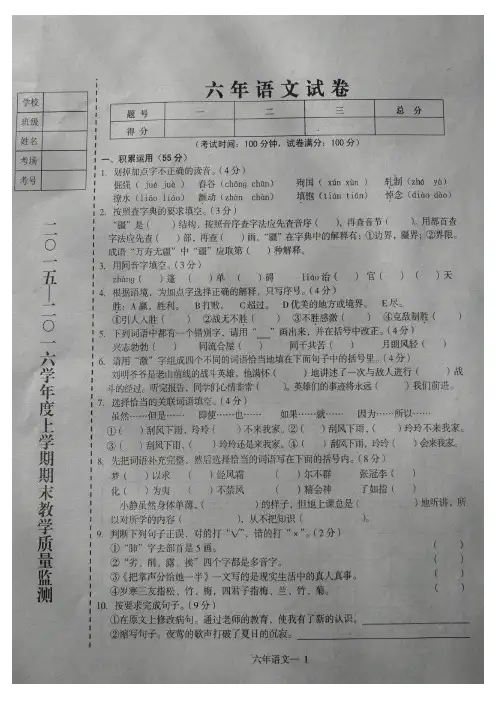 六年语文试卷
题 号 一 二 三 总 分
得 分
(考试时间:100分钟,试卷满分:100分)
学校
班级
姓名
考场
考号
二〇一五—二〇一六学年度上学期期末教学质量监测
一、积累运用(55分)
1. 划掉加点字不正确的读音。(4分)
倔强(jué juè) 舂谷(chōng chūn) 殉国(xùn xún) 轧制(zhá yà)
潦水(liáo liáo) 颤动(zhàn chàn) 填饱(tián tiān) 悼念(diào dào)
2. 按照查字典的要求填空。(3分)
“疆”是( )结构,按照音序查字法应先查音序( ),再查音节( )。用部首查
字法应先查( )部,再查( )画。“疆”在字典中的解释有:①边界,疆界;②界限。
成语“万寿无疆”中“疆”应取第( )种解释。
3. 用同音字填空。(3分)
zhàng( )蓬 ( )单 ( )碍 liáo治( ) 官( ) ( )天
4. 根据语境,为加点字选择正确的解释,只写序号。(4分)
胜:A赢,胜利。 B打败。 C超过。 D优美的地方或境界。 E尽。
①引人入胜( ) ②战无不胜( ) ③不胜感激( ) ④克敌制胜( )
5. 下列词语中都有一个错别字,请用“__”画出来,并在括号中改正。(4分)
兴志勃勃( ) 同流合屋( ) 同干共苦( ) 月朗风轻( )
6. 请用“激”字组成四个不同的词语恰当地填在下面句子中的括号里。(4分)
刘明爷爷是老山前线的战斗英雄。他满怀( )地讲述了一次与敌人进行( )战
斗的经过。听完报告,同学们心情非常( )。英雄们的事迹将永远( )我们前进。
7. 选择恰当的关联词语填空。(4分)
虽然……但是…… 即使……也…… 如果……就…… 因为……所以……
①( )刮风下雨,玲玲( )不来我家。②( )刮风下雨,( )玲玲不来我家。
③( )刮风下雨,( )玲玲还是来我家。④( )刮风下雨,玲玲( )会来我家。
8. 先把词语补充完整,然后选择恰当的词语写在下面的括号内。(8分)
梦( )以求 ( )经风霜 ( )尔不群 张冠李( )
化( )为夷 ( )不禁风 ( )精会神 了如指( )
小静虽然身体单薄,( )的样子,但他上课总是( )地听讲,所
以对所学的内容( ),从不把知识( )。
9. 判断下列句子正误,对的打“√”,错的打“×”。(2分)
①“肺”字去部首是5画。 ( )
②“劣、削、露、挨”四个字都是多音字。 ( )
③《把掌声分给她一半》一文写的是现实生活中的真人真事。 ( )
④岁寒三友指松、竹、梅,四君子指梅、兰、竹、菊。 ( )
10. 按要求完成句子。(9分)
①在原文上修改病句。通过老师的教育,使我有了新的认识。
②缩写句子。夜莺的歌声打破了夏日的沉寂。
六年语文— 1